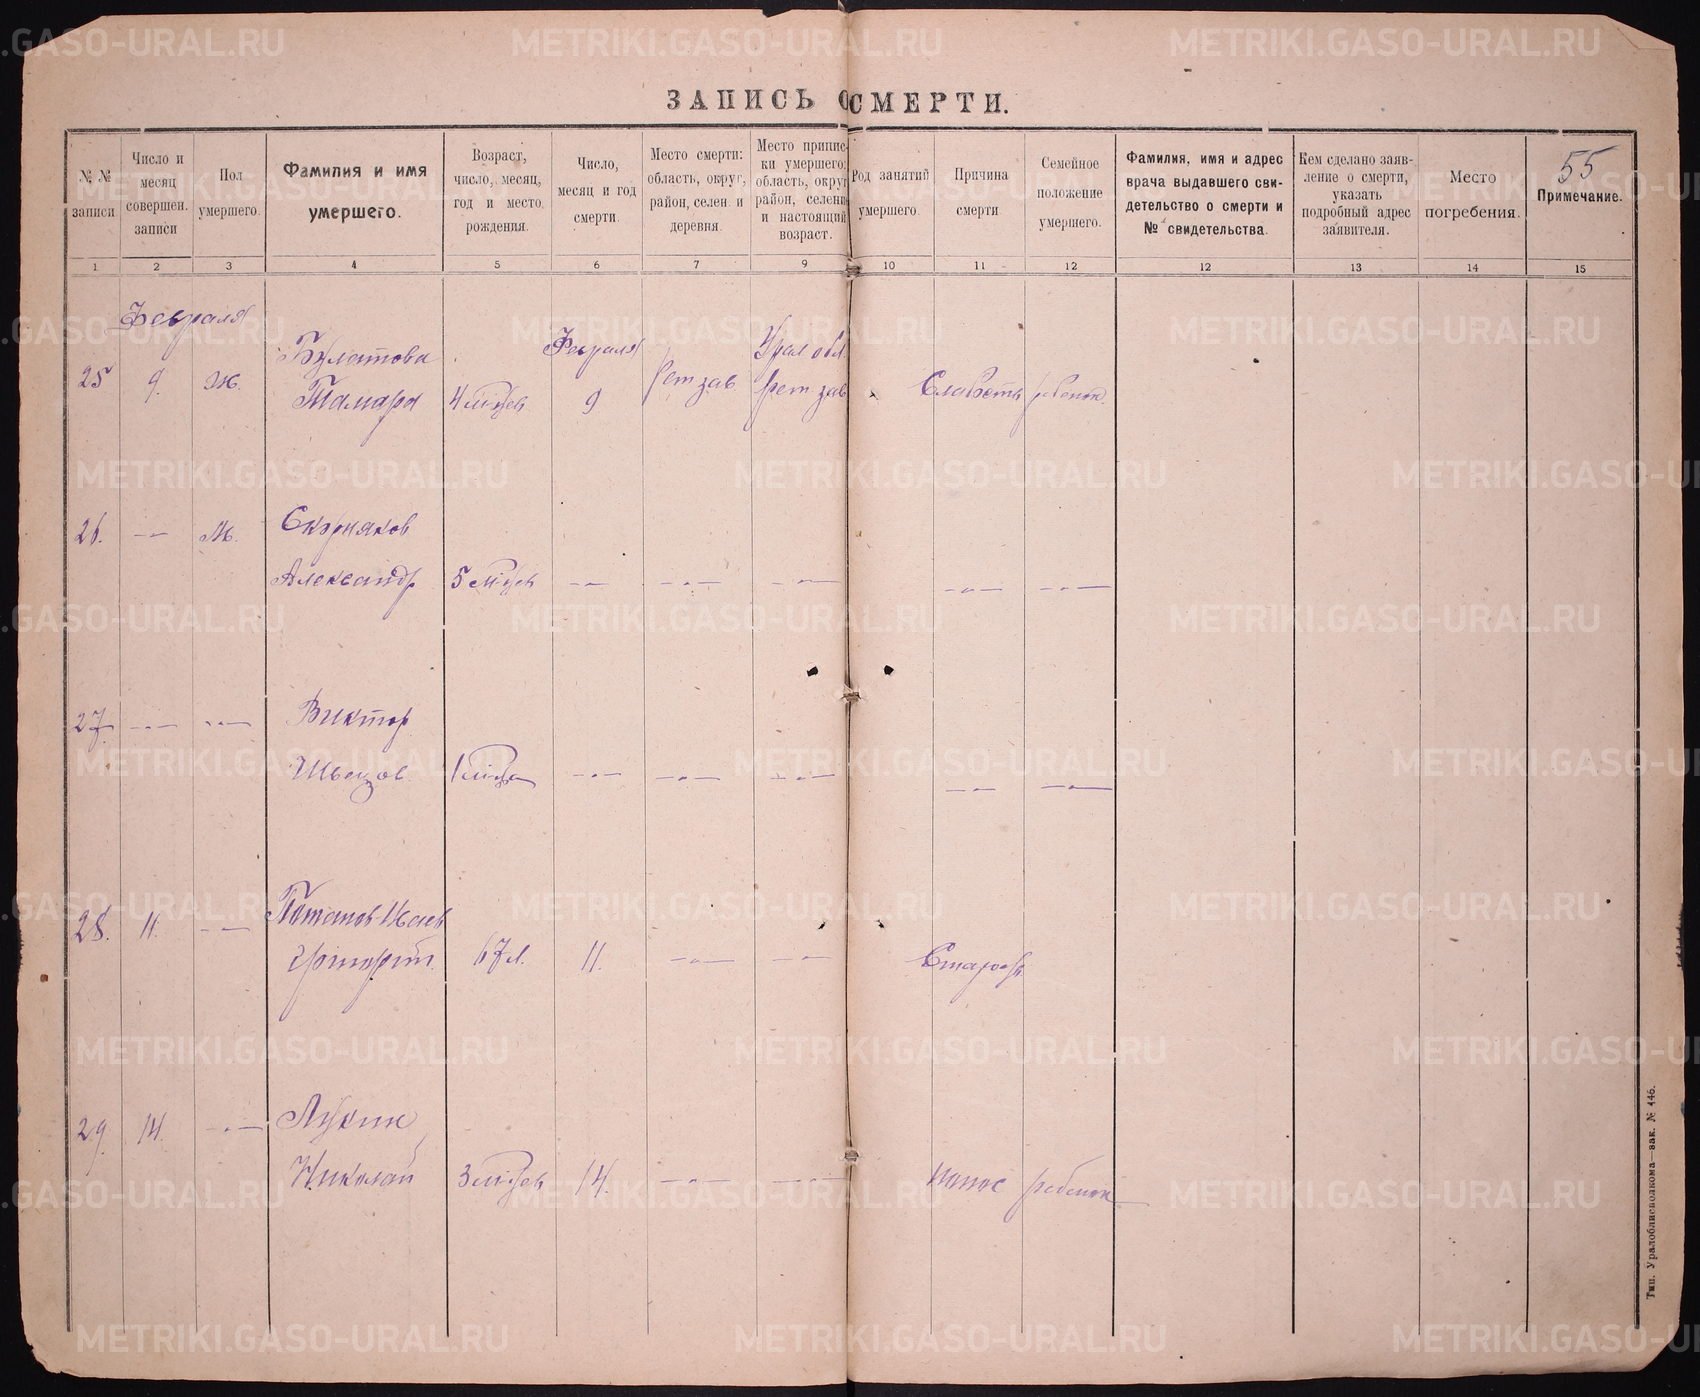 ЗАПИСЬ О СМЕРТИ.
№ № записи
Число и месяц совершен. записи
Пол умершего.
Фамилия и имя умершего.
Возраст, число, месяц, год и место рождения.
Число, месяц и год смерти.
Место смерти: область, округ, район, селен. и деревня.
Место приписки умершего: область, округ район, селени и настоящий возраст.
Род занятий умершего.
Причина смерти
Семейное положение умершего.
Фамилия, имя и адрес врача выдавшего свидетельство о смерти и № свидетельства.
Кем сделано заявление о смерти, указать подробный адрес заявителя.
Место погребения.
55
Примечание.
1 2 3 4 5 6 7 9 10 11 12 12 13 14 15
Февраля
Булатова Февраля Урал обл.
25 9. Ж. Тамара 4 м-цев 9 Рет зав Рет зав Слабость ребенок
26. — м. Скорняков
Александр 5 м-цев — — — — —
27 — — Виктор
Швецов 1 м-ца — — — — —
28. 11. — Потапов Исаев
Григорий 67 л. 11. — — Старость
29. 14. — Лукин
Николай 3 м-цев 14. — — Понос ребенок
Тип. Уралоблисполкома—зак. № 446.
METRIKI.GASO-URAL.RU